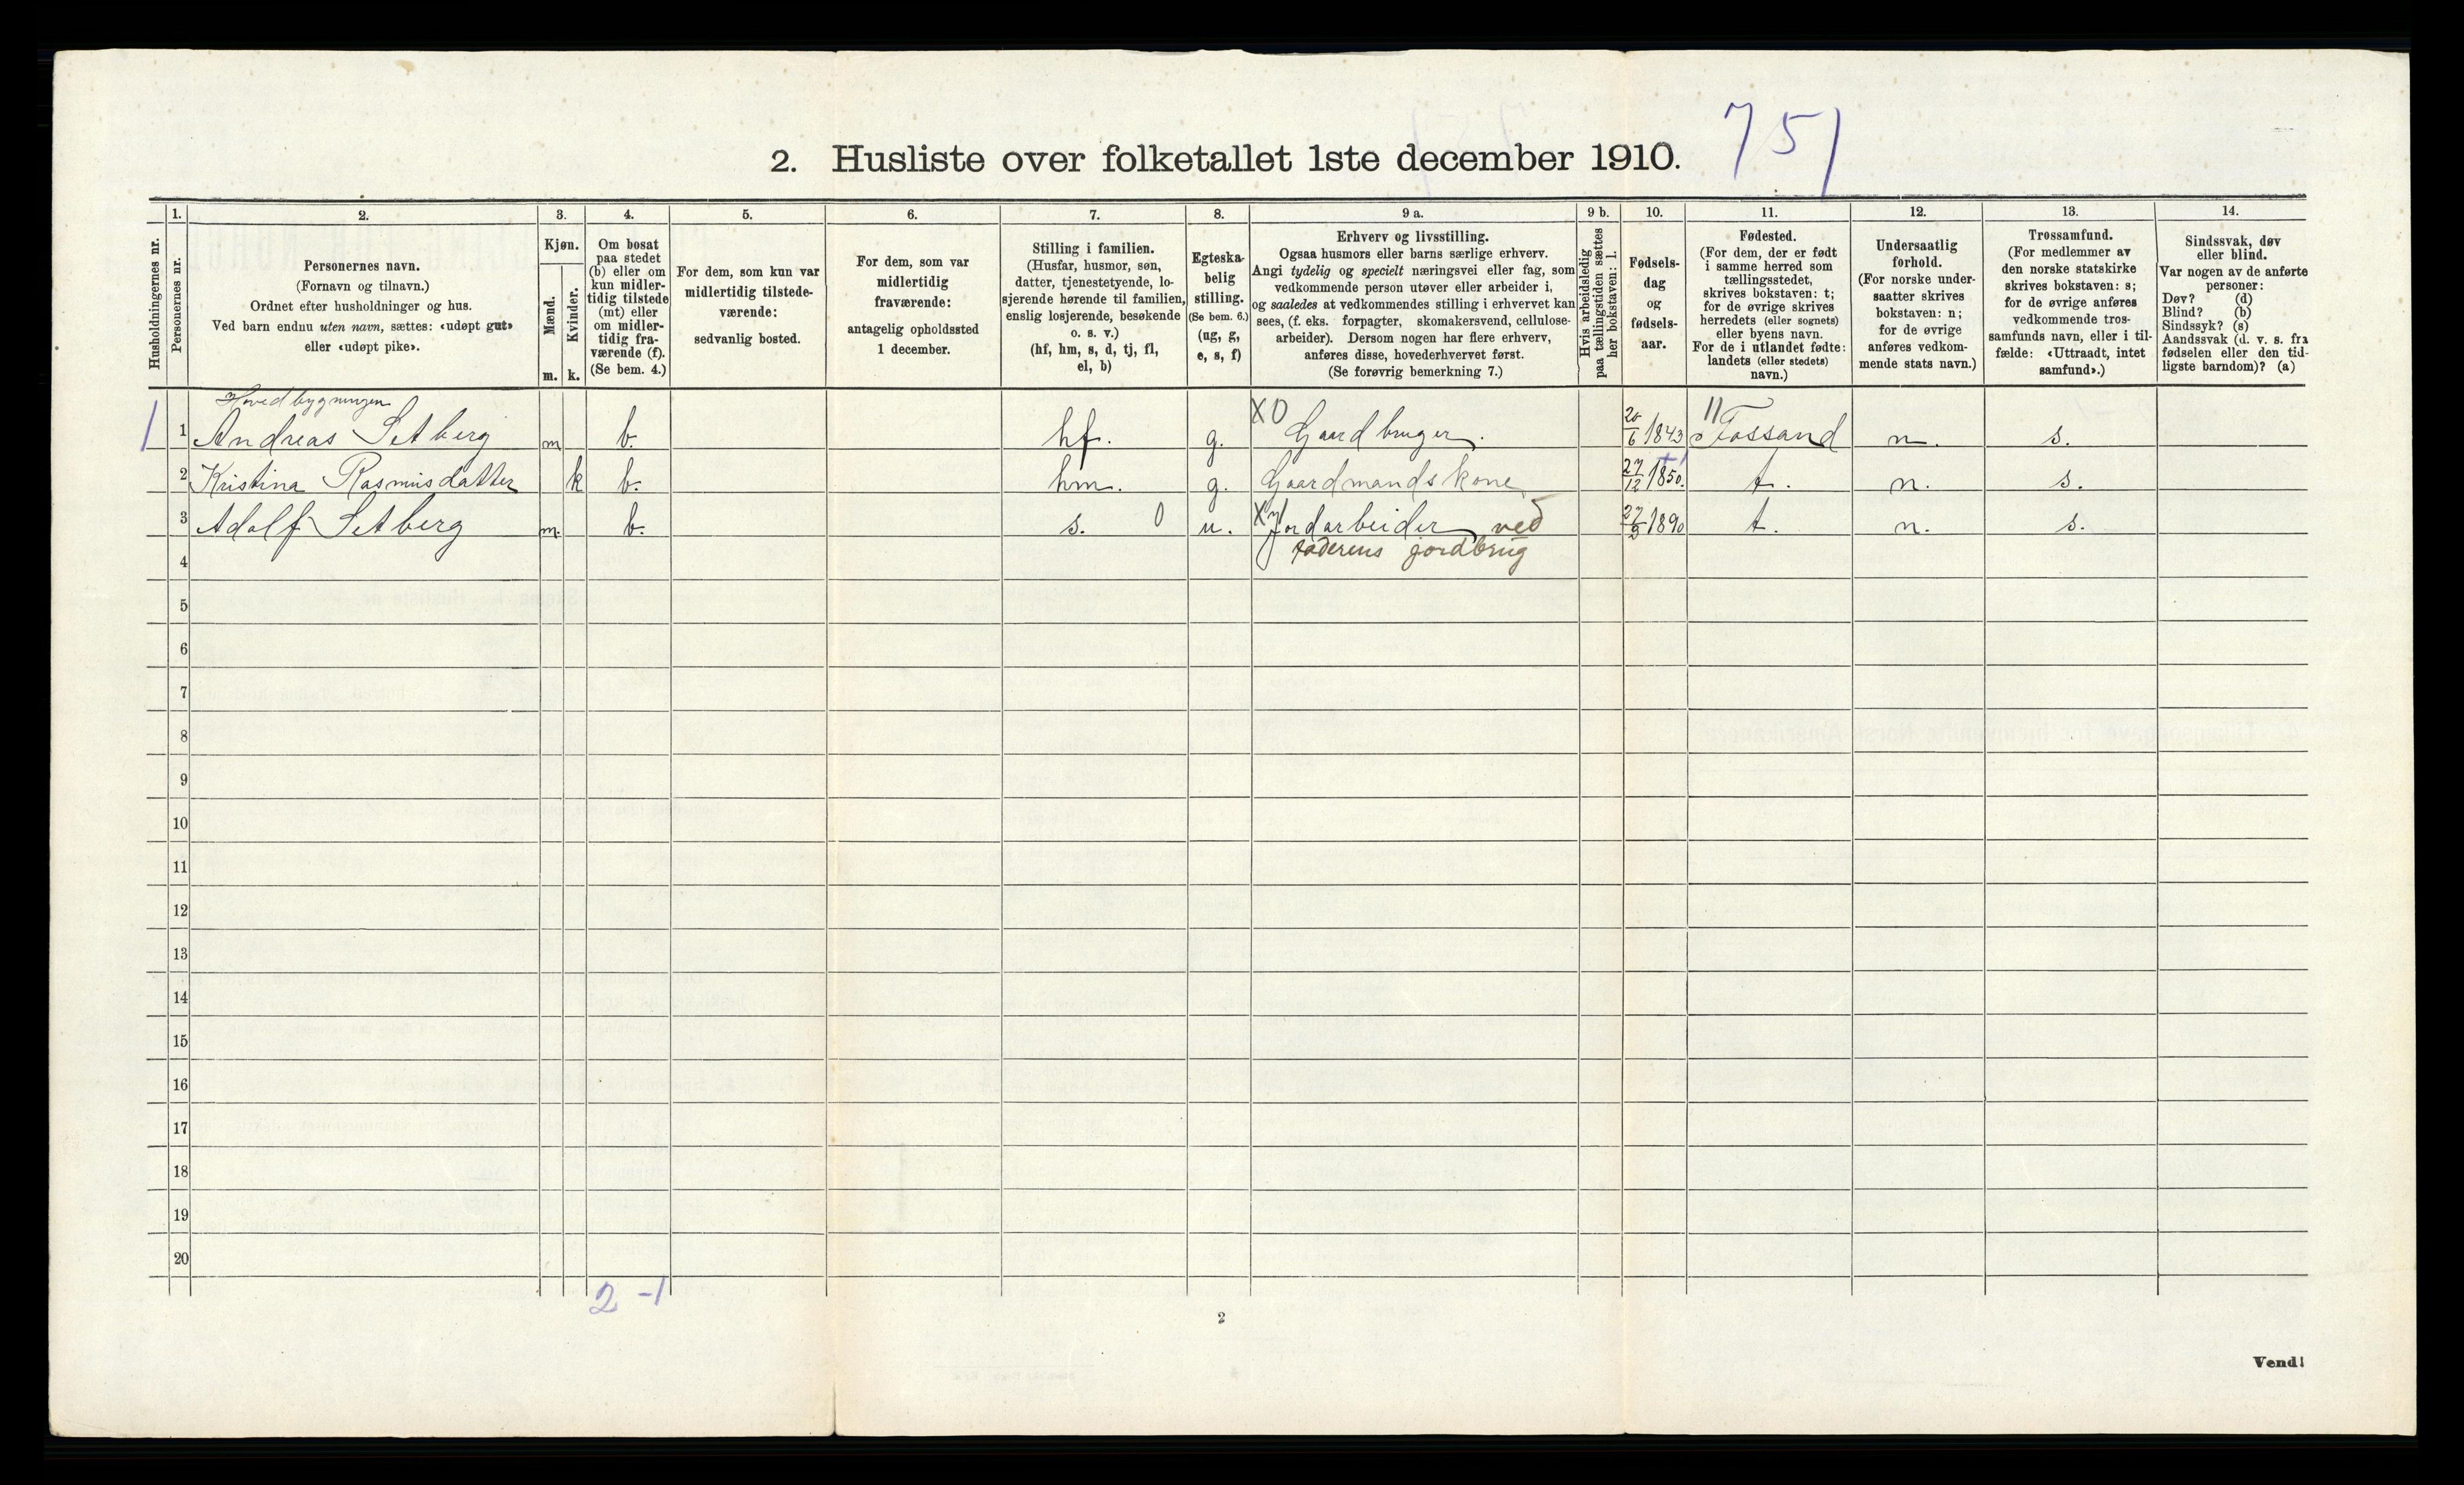 751
2. Husliste over folketallet 1ste december 1910.
Husholdningernes nr.
1.
Personernes nr.
2.
Personernes navn.
(Fornavn og tilnavn.)
Ordnet efter husholdninger og hus.
Ved barn endnu uten navn, sættes: «udøpt gut»
eller «udøpt pike».
3.
Kjøn.
Mænd.
m.
Kvinder.
k.
4.
Om bosat
paa stedet
(b) eller om
kun midler-
tidig tilstede
(mt) eller
om midler-
tidig fra-
værende (f).
(Se bem. 4.)
5.
For dem, som kun var
midlertidig tilstede-
værende:
sedvanlig bosted.
6.
For dem, som var
midlertidig
fraværende:
antagelig opholdssted
1 december.
7.
Stilling i familien.
(Husfar, husmor, søn,
datter, tjenestetyende, lo-
sjerende hørende til familien,
enslig losjerende, besøkende
o. s. v.)
(hf, hm, s, d, tj, fl,
el, b)
8.
Egteska-
belig
stilling.
(Se bem. 6.)
(ug, g,
e, s, f)
9 a.
Erhverv og livsstilling.
Ogsaa husmors eller barns særlige erhverv.
Angi tydelig og specielt næringsvei eller fag, som
vedkommende person utøver eller arbeider i,
og saaledes at vedkommendes stilling i erhvervet kan
sees, (f. eks. forpagter, skomakersvend, cellulose-
arbeider). Dersom nogen har flere erhverv,
anføres disse, hovederhvervet først.
(Se forøvrig bemerkning 7.)
9 b.
Hvis arbeidsledig
paa tællingstiden sættes
her bokstaven: l.
10.
Fødsels-
dag
og
fødsels-
aar.
11.
Fødested.
(For dem, der er født
i samme herred som
tællingsstedet,
skrives bokstaven: t;
for de øvrige skrives
herredets (eller sognets)
eller byens navn.
For de i utlandet fødte:
landets (eller stedets)
navn.)
12.
Undersaatlig
forhold.
(For norske under-
saatter skrives
bokstaven: n;
for de øvrige
anføres vedkom-
mende stats navn.)
13.
Trossamfund.
(For medlemmer av
den norske statskirke
skrives bokstaven: s;
for de øvrige anføres
vedkommende tros-
samfunds navn, eller i til-
fælde: «Uttraadt, intet
samfund».)
14.
Sindssvak, døv
eller blind.
Var nogen av de anførte
personer:
Døv? (d)
Blind? (b)
Sindssyk? (s)
Aandssvak (d. v. s. fra
fødselen eller den tid-
ligste barndom)? (a)
Hovedbygningen
1 1 Andreas Setberg m b. hf. g. X0 Gaardbruger. 20/6 1843 11 Fossand n. s.
2 Kristina Rasmusdatter k b. hm. g. Gaardmandskone 27/12 1850. t. n. s.
3 Adolf Setberg m. b. s. 0 u. X Jordarbeider ved 1890 t. n. s.
4 faderens jordbrug
5
6
7
8
9
10
11
12
13
14
15
16
17
18
19
20
2 -1
2
Vend!